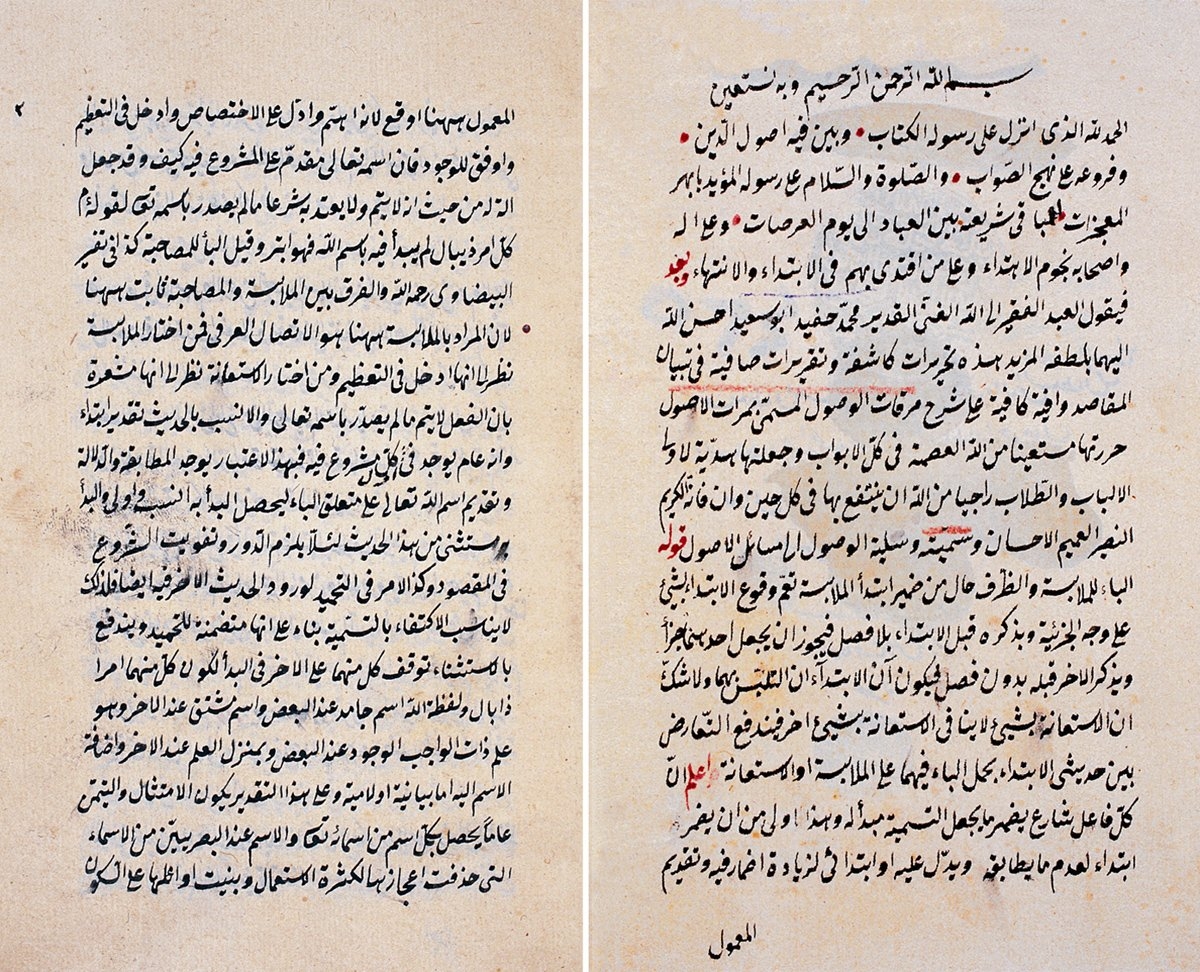 بسم الله الرحمن الرحيم وبه نستعين
الحمد لله الذى انزل على رسوله الكتاب • وبين فيه اصول الدين •
وفروعه على نهج الصواب • والصلوة والسلام على رسوله المؤيد بابهر
المعجزات فى شريعته بين العباد الى يوم العرصات • وعلى اله
واصحابه نجوم الاهتداء وعلى من اقتدى بهم فى الابتداء والانتهاء وبعد
فيقول العبد الفقير الى الله الغنى القدير محمد حفيد ابو سعيد احسن الله
اليهما بلطفه المزيد هذه تحريرات كاشفة وتقريرات صافية فى تبيان
المقاصد وافية كافية على شرح مرقات الوصول المسمى بمرات الاصول
حررتها مستعينا من الله العصمة فى كل الابواب وجعلتها هدية لاولى
الالباب والطلاب راجيا من الله ان ينتفع بها فى كل حين وان فانه الكريم
النصر العميم الاحسان وسميته وسيلة الوصول الى مسائل الاصول قوله
الباء للملابسة والظرف حال من ضمير ابتدأ الملابسة تعم وقوع الابتداء بشئ
على وجه الجزئية وبذكره قبل الابتداء بلا فصل فيجوز ان يجعل احدهما جزأ
ويذكر الاخر قبله بدون فصل فيكون آن الابتداء آن التلبس بهما ولا شك
ان الاستعانة بشئ لا ينافى الاستعانة بشئ اخر فيندفع التعارض
بين حديثى الابتداء بحمل الباء فيهما على الملابسة او الاستعانة اعلم ان
كل فاعل شارع يضمر ما يجعل التسمية مبدأ له وهذا اولى من ان يضمر
ابتداء لعدم ما يطابقه ويدل عليه او ابتدائى لزيادة اضمار فيه وتقديم
المعمول
٢
المعمول ههنا اوقع لانه اهم وادل على الاختصاص وادخل فى التعظيم
واوفق للوجود فان اسمه تعالى مقدم على المشروع فيه كيف وقد جعل
الة له من حيث انه لا يتم ولا يعتد به شرعا ما لم يصدر باسمه تعالى لقوله م
كل امر ذى بال لم يبدأ فيه باسم الله فهو ابتر وقيل البأ للمصاحبة كذا فى تفسير
البيضاوى رحمه الله والفرق بين الملابسة والمصاحبة ثابت ههنا
لان المراد بالملابسة ههنا هو الاتصال العرفى فمن اختار الملابسة
نظر الى انها ادخل فى التعظيم ومن اختار الاستعانة نظر الى انها مشعرة
بان الفعل لا يتم ما لم يصدر باسمه تعالى والانسب بالحديث تقدير ابتداء
وانه عام يوجد فى كل مشروع فيه فبهذا الاعتبار يوجد المطابقة والدلالة
وتقديم اسم الله تعالى على متعلق الباء ليحصل البدأ به انسب واولى والبدأ
مستثنى من هذا الحديث لئلا يلزم الدور وتفويت الشروع
فى المقصود وكذا الامر فى التحميد لورود الحديث الاخر فيه ايضا فلذلك
لا يناسب الاكتفاء بالتسمية بناء على انها متضمنة للتحميد ويندفع
بالاستثناء توقف كل منهما على الاخر فى البدأ لكون كل منهما امرا
ذا بال ولفظة الله اسم جامد عند البعض واسم مشتق عند الاخر وهو
علم ذات الواجب الوجود عند البعض وبمنزل العلم عند الاخر واضافة
الاسم اليه اما بيانية او لامية وعلى هذا التقدير يكون الامتثال والتيمن
عاما يحصل بكل اسم من اسمائه تعالى والاسم عند البصريين من الاسماء
التى حذفت اعجازها لكثرة الاستعمال وبنيت اوائلها على السكون